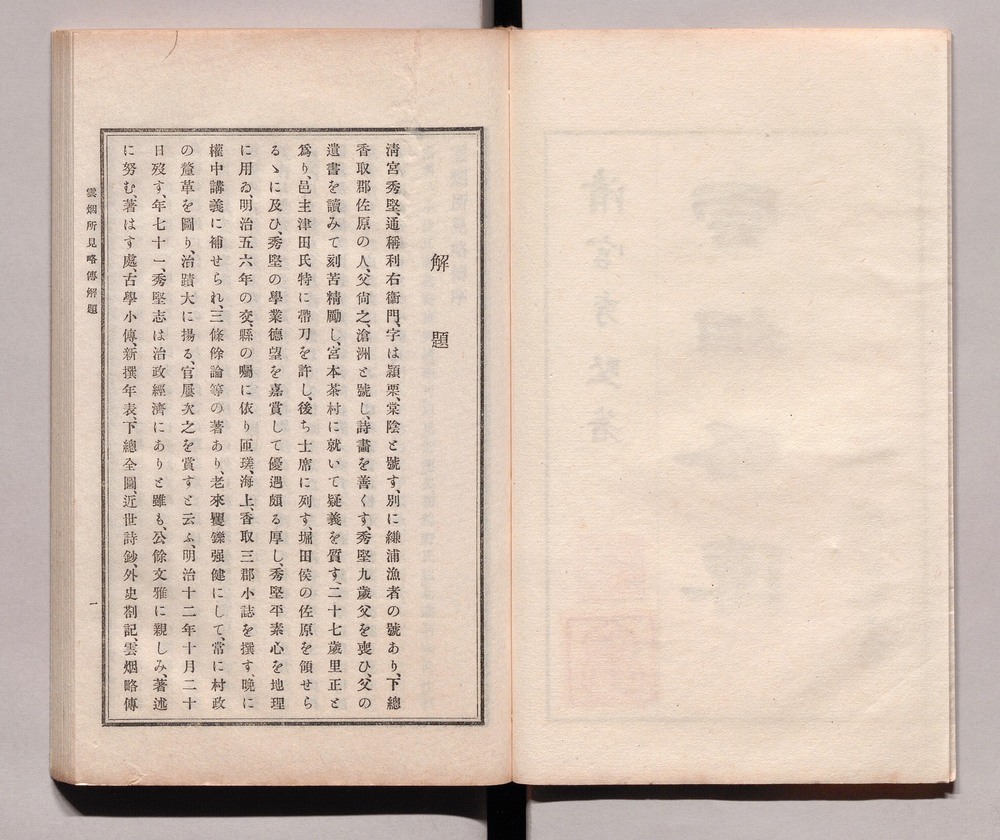 解題
淸宮秀堅、通稱利右衞門、字は頴栗、棠陰と號す、別に縑浦漁者の號あり、下總
香取郡佐原の人、父尙之、滄洲と號し、詩畵を善くす、秀堅九歲父を喪ひ、父の
遺書を讀みて刻苦精勵し、宮本茶村に就いて疑義を質す、二十七歲里正と
爲り、邑主津田氏特に帶刀を許し、後ち士席に列す、堀田侯の佐原を領せら
るゝに及ひ、秀堅の學業德望を嘉賞して優遇頗る厚し、秀堅平素心を地理
に用ゐ、明治五六年の交、縣の囑に依り匝瑳、海上、香取三郡小誌を撰す、晩に
權中講義に補せられ、三條餘論等の著あり、老來矍鑠强健にして、常に村政
の釐革を圖り、治蹟大に揚る、官屢次之を賞すと云ふ、明治十二年十月二十
日歿す、年七十一、秀堅志は治政經濟にありと雖も、公餘文雅に親しみ、著述
に努む、著はす處、古學小傳、新撰年表、下總全圖、近世詩鈔、外史剳記、雲烟略傳
雲烟所見略傳解題
一